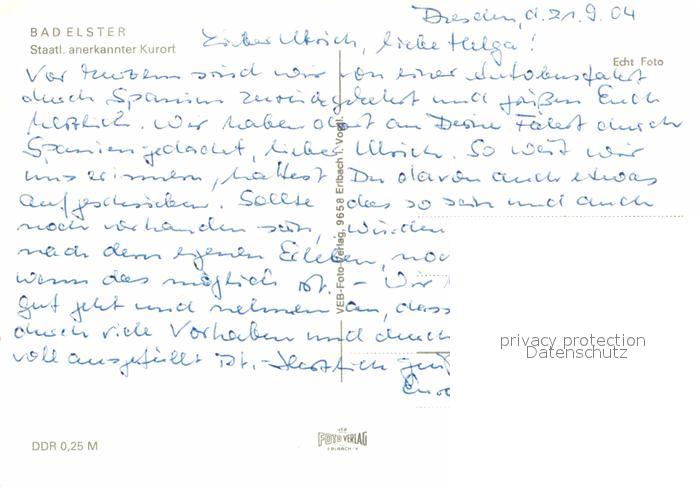 Dresden, d. 21.9.04
BAD ELSTER
Staatl. anerkannter Kurort
Lieber Ulrich, liebe Helga!
Echt Foto
Vor kurzem sind wir von einer Autobusfahrt
durch Spanien zurückgekehrt und grüßen Euch
herzlich. Wir haben dort an Deine Fahrt durch
Spanien gedacht, lieber Ulrich. So weit wir
uns erinnern, hattest Du davon auch etwas
aufgeschrieben. Sollte das so sein und auch
noch vorhanden sein, würden
nach dem eigenen Erleben, noc
wenn das möglich ist. - Wir
gut geht und nehmen an, dass
durch viele Vorhaben und durch
voll ausgefüllt ist. - Herzlich
VEB-Foto-Verlag, 9658 Erlbach i. Vogtl.
privacy protection
Datenschutz
DDR 0,25 M
VEB
FOTO VERLAG
ERLBACH-V.